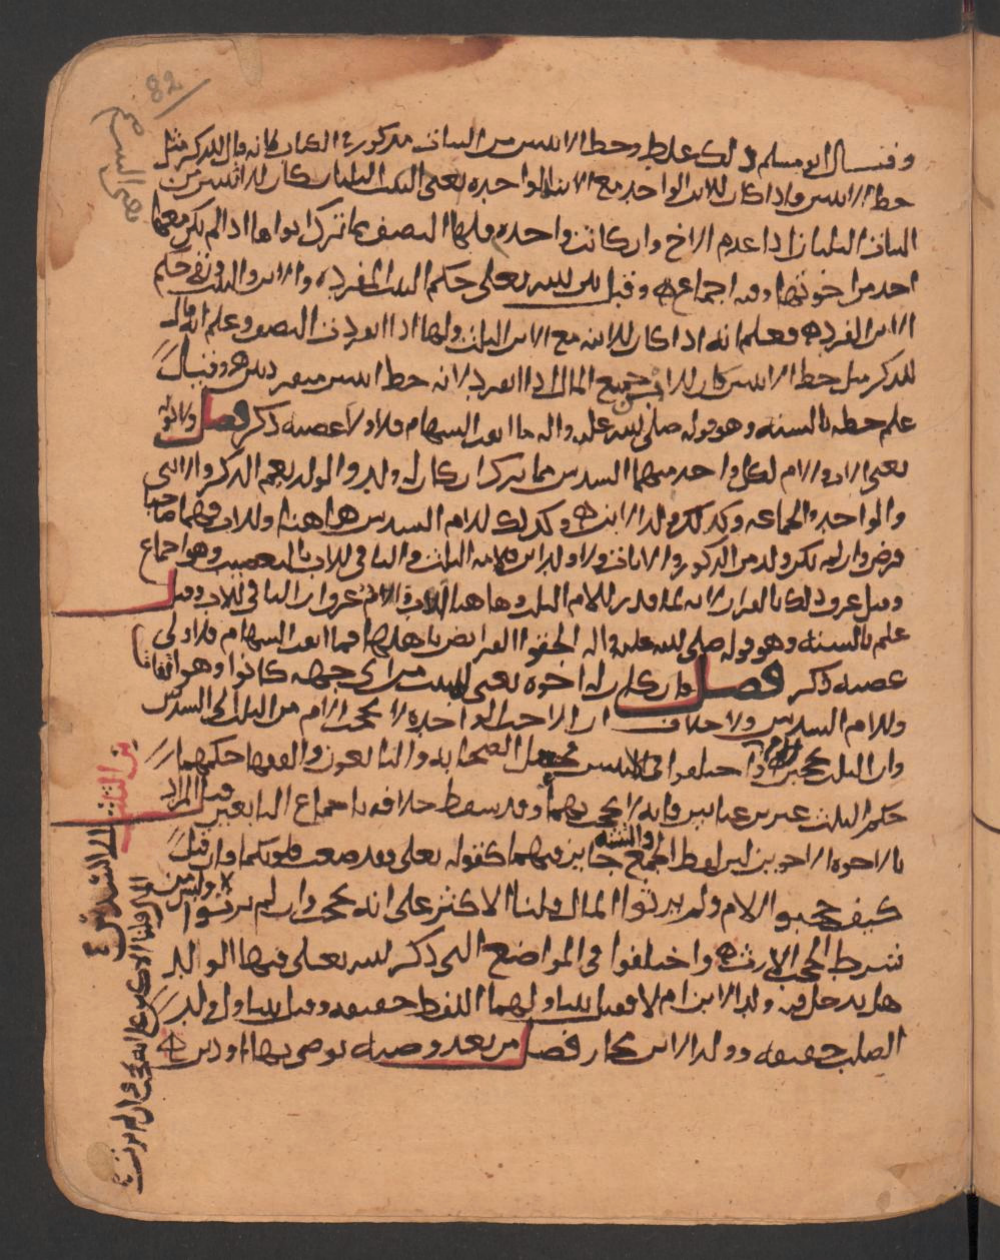 82
وقال ابو مسلم ذلك غلط وحظ الانثيين من البنات مذكور في الكتاب لانه قال للذكر مثل
حظ الانثيين واذا كان للابن الواحد مع الابنة الواحدة يعني الثلث الثلثان كان للانثيين من
البنات الثلثان اذا عدم الاخ وان كانت واحدة فلها النصف مما ترك ابواها اذا لم يكن معها
احد من اخوتها وفيه اجماع وقيل بين الله تعالى حكم البنت المفردة والابن والبنت في حكم
الابن المفرد فعلم انه اذا كان للابن مع الابن الثلث ولها اذا انفردت النصف وعلم انه قال
للذكر مثل حظ الانثيين كان للابن جميع المال اذا انفرد لانه حظ انثيين منفردتين وقيل
علم حظه بالسنة وهو قوله صلى الله عليه واله ما ابقت السهام فلاولى عصبة ذكر فصل ولابويه
يعني الاب والام لكل واحد منهما السدس مما ترك ان كان له ولد والولد يعم الذكر والانثى
والواحد والجماعة وكذلك ولد الابن وكذلك للام السدس هاهنا وللاب فيهما صاحبا
فرض وان لم يكن ولد من الذكور والاناث ولا ولد ابن فلامه الثلث والباقي للاب بالتعصيب وهو اجماع
وقيل عرف ذلك بالقران لانه لما قدر للام الثلث وهاهنا عرف ان الباقي للاب وقيل
علم بالسنة وهو قوله صلى الله عليه واله الحقوا الفرائض باهلها فما ابقت السهام فلاولى
عصبة ذكر فصل فان كان له اخوة يعني للميت من اي جهة كانوا وهو اتفاقا
وللام السدس ولا خلاف ان الاخت الواحدة لا تحجب الام من الثلث الى السدس
وان الثلث تحجب الام واختلفوا في الاثنين فجعل الصحابة والتابعون والفقهاء حكمهما
حكم الثلث غير ابن عباس فانه لا يحجب بهما وقد سقط خلافه باجماع التابعين قيل المراد
بالاخوة الاخوين لان لفظ الجمع والتثنية جايز فيهما كقوله تعالى فقد صغت قلوبكما وان قيل
كيف حجبوا الام ولم يرثوا المال قلنا الاكثر على انه يحجب وان لم يرثوا وليس من
شرط الحجب الارث واختلفوا في المواضع التي ذكر الله تعالى فيها الوالد
هل يدخل فيه ولد الابن ام لا فقيل يتناولهما اللفظ حقيقة وقيل يتناول ولد
الصلب حقيقة وولد الابن مجاز فصل من بعد وصية يوصي بها او دين
من الثلث الى السدس